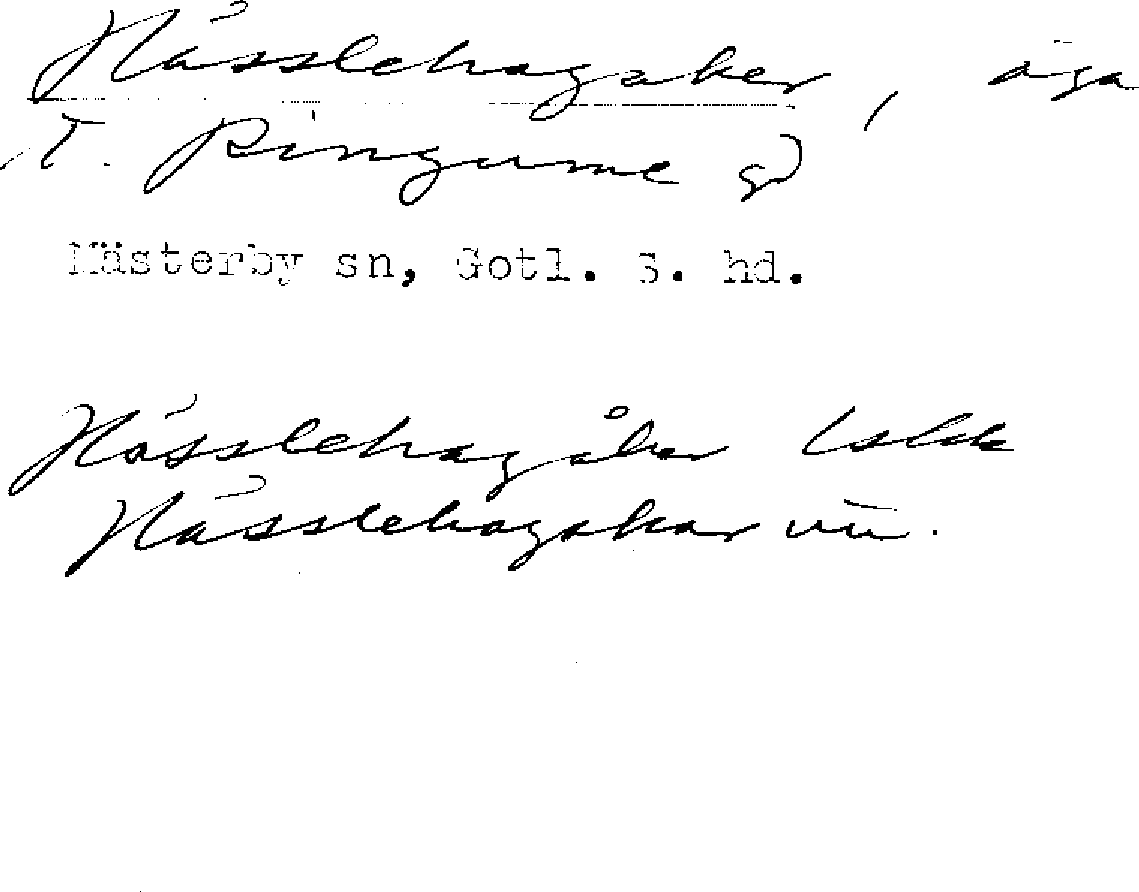 Hässlehagaker, äga
t. Ringume gd
Mästerby sn, Gotl. S. hd.
Hässlehagåker
Hässlehagakar